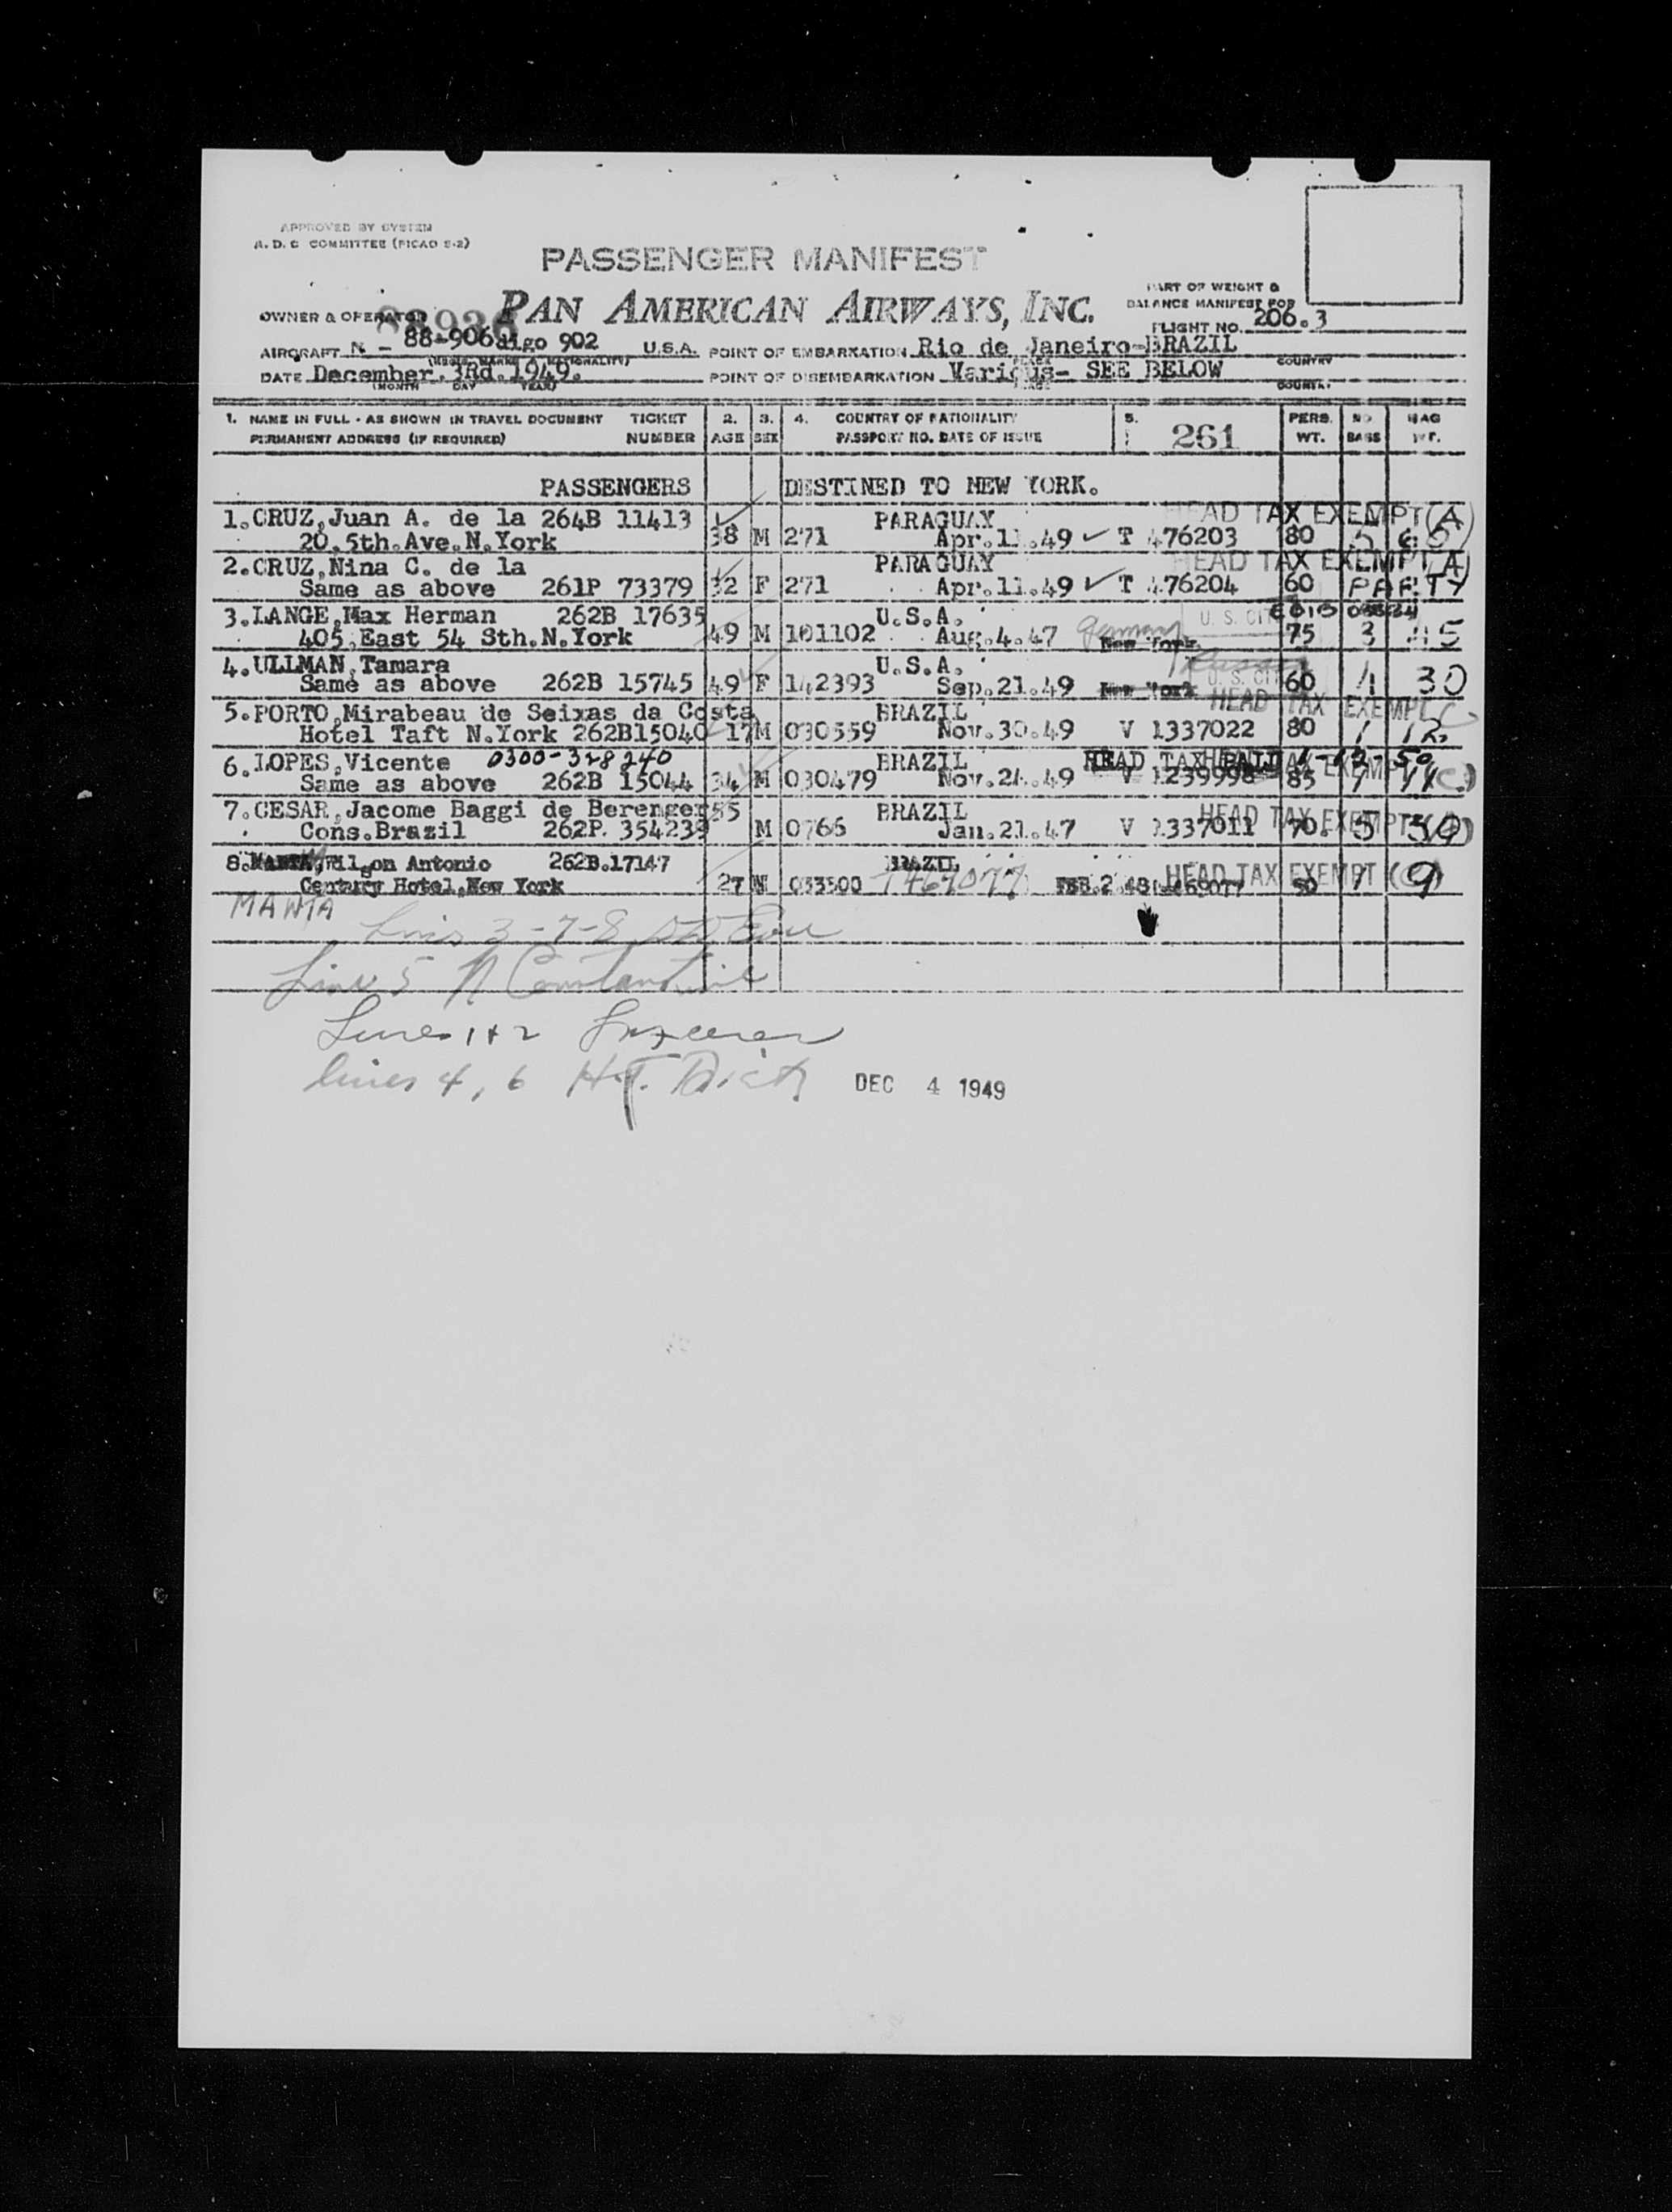 APPROVED BY SYSTEM
A. D. C COMMITTEE (PICAO S-2)
PASSENGER MANIFEST
PART OF WEIGHT &
BALANCE MANIFEST FOR
OWNER & OPERATOR PAN AMERICAN AIRWAYS, INC.
FLIGHT NO. 206.3
AIRCRAFT N - 88-906 902 U.S.A. POINT OF EMBARKATION Rio de Janeiro-BRAZIL
COUNTRY
DATE December.3Rd.1949. POINT OF DISEMBARKATION Various- SEE BELOW
(MONTH DAY YEAR)
1. NAME IN FULL - AS SHOWN IN TRAVEL DOCUMENT TICKET 2. 3. 4. COUNTRY OF NATIONALITY 5. 261 PERS. NO BAG
PERMANENT ADDRESS (IF REQUIRED) NUMBER AGE SEX PASSPORT NO. DATE OF ISSUE WT. BAGS WT.
PASSENGERS DESTINED TO NEW YORK.
1.CRUZ,Juan A. de la 264B 11413 PARAGUAY HEAD TAX EXEMPT (A)
20.5th.Ave.N.York 38 M 271 Apr.11.49 T 476203 80 5
2.CRUZ,Nina C. de la PARAGUAY HEAD TAX EXEMPT (A)
Same as above 261P 73379 32 F 271 Apr.11.49 T 476204 60 PARTY
3.LANGE,Max Herman 262B 17635 U.S.A. U. S. CIT
405,East 54 Sth.N.York 49 M 101102 Aug.4.47 Germany New York 75 3 45
4.ULLMAN,Tamara U.S.A. Russia
Same as above 262B 15745 49 F 142393 Sep.21.49 New York U. S. CIT 60 1 30
5.PORTO,Mirabeau de Seixas da Costa BRAZIL HEAD TAX EXEMPT C
Hotel Taft N.York 262B15040 17 M 030559 Nov.30.49 V 1337022 80 1 12
6.LOPES,Vicente 0300-328240 BRAZIL HEAD TAX PAID 1-12-50
Same as above 262B 15044 34 M 030479 Nov.24.49 V 1239998 85 1 11 (C)
7.CESAR,Jacome Baggi de Berenger 55 BRAZIL HEAD TAX EXEMPT
Cons.Brazil 262P. 354239 M 0766 Jan.21.47 V 1337011 70. 3 39
8. Wilson Antonio 262B.17147 BRAZIL HEAD TAX EXEMPT (C)
Century Hotel,New York 27 M 033500 1469077 FEB.2 48 1469077 80 1 9
MANTA
Lines 3-7-8
Line 5 N Constantine
Lines 1+2
lines 4, 6 H.T. DEC 4 1949